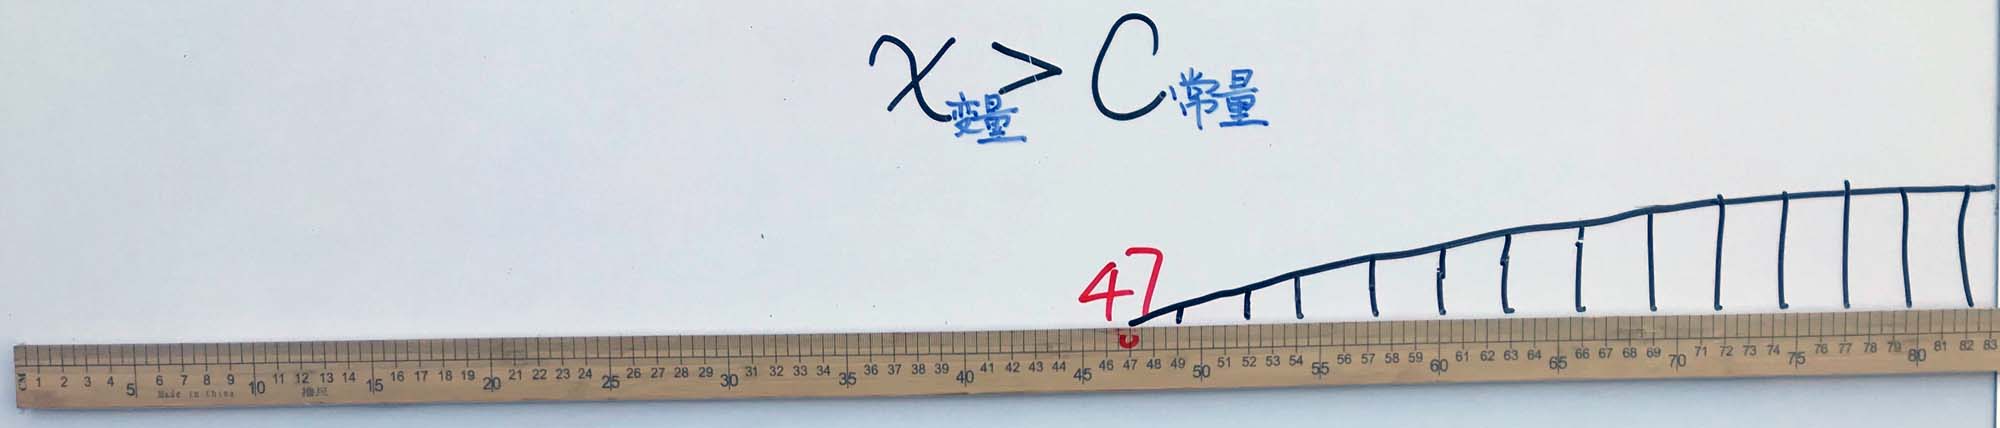 x > C
变量 常量
47
1 2 3 4 5 6 7 8 9 10 11 12 13 14 15 16 17 18 19 20 21 22 23 24 25 26 27 28 29 30 31 32 33 34 35 36 37 38 39 40 41 42 43 44 45 46 47 48 49 50 51 52 53 54 55 56 57 58 59 60 61 62 63 64 65 66 67 68 69 70 71 72 73 74 75 76 77 78 79 80 81 82 83
CM
Made in China